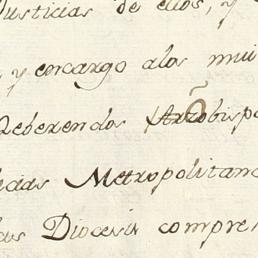 Justicias de ellos, y
y encargo alos mui
Reberendos Arzobispo
cias Metropolitana
las Diocesis compren